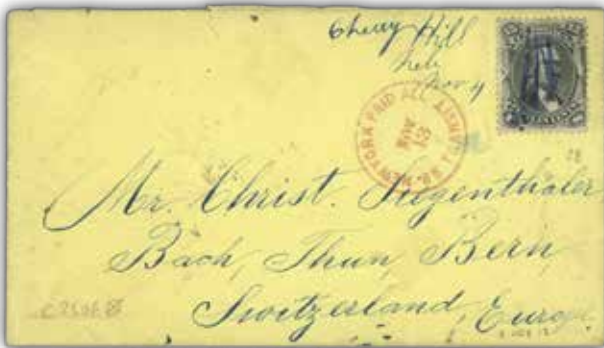 Cherry Hill
Neb
Nov 4
NEW YORK PAID ALL
NOV
13
Mr. Christ. Siegenthaler
Bach, Thun, Bern,
Switzerland, Europe